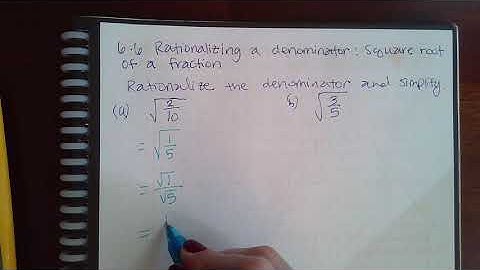 6.6 Rationalizing a denominator: Square root
of a fraction
Rationalize the denominator and simplify.
(a) √(2/10) b) √(3/5)
= √(1/5)
= √1/√5
=